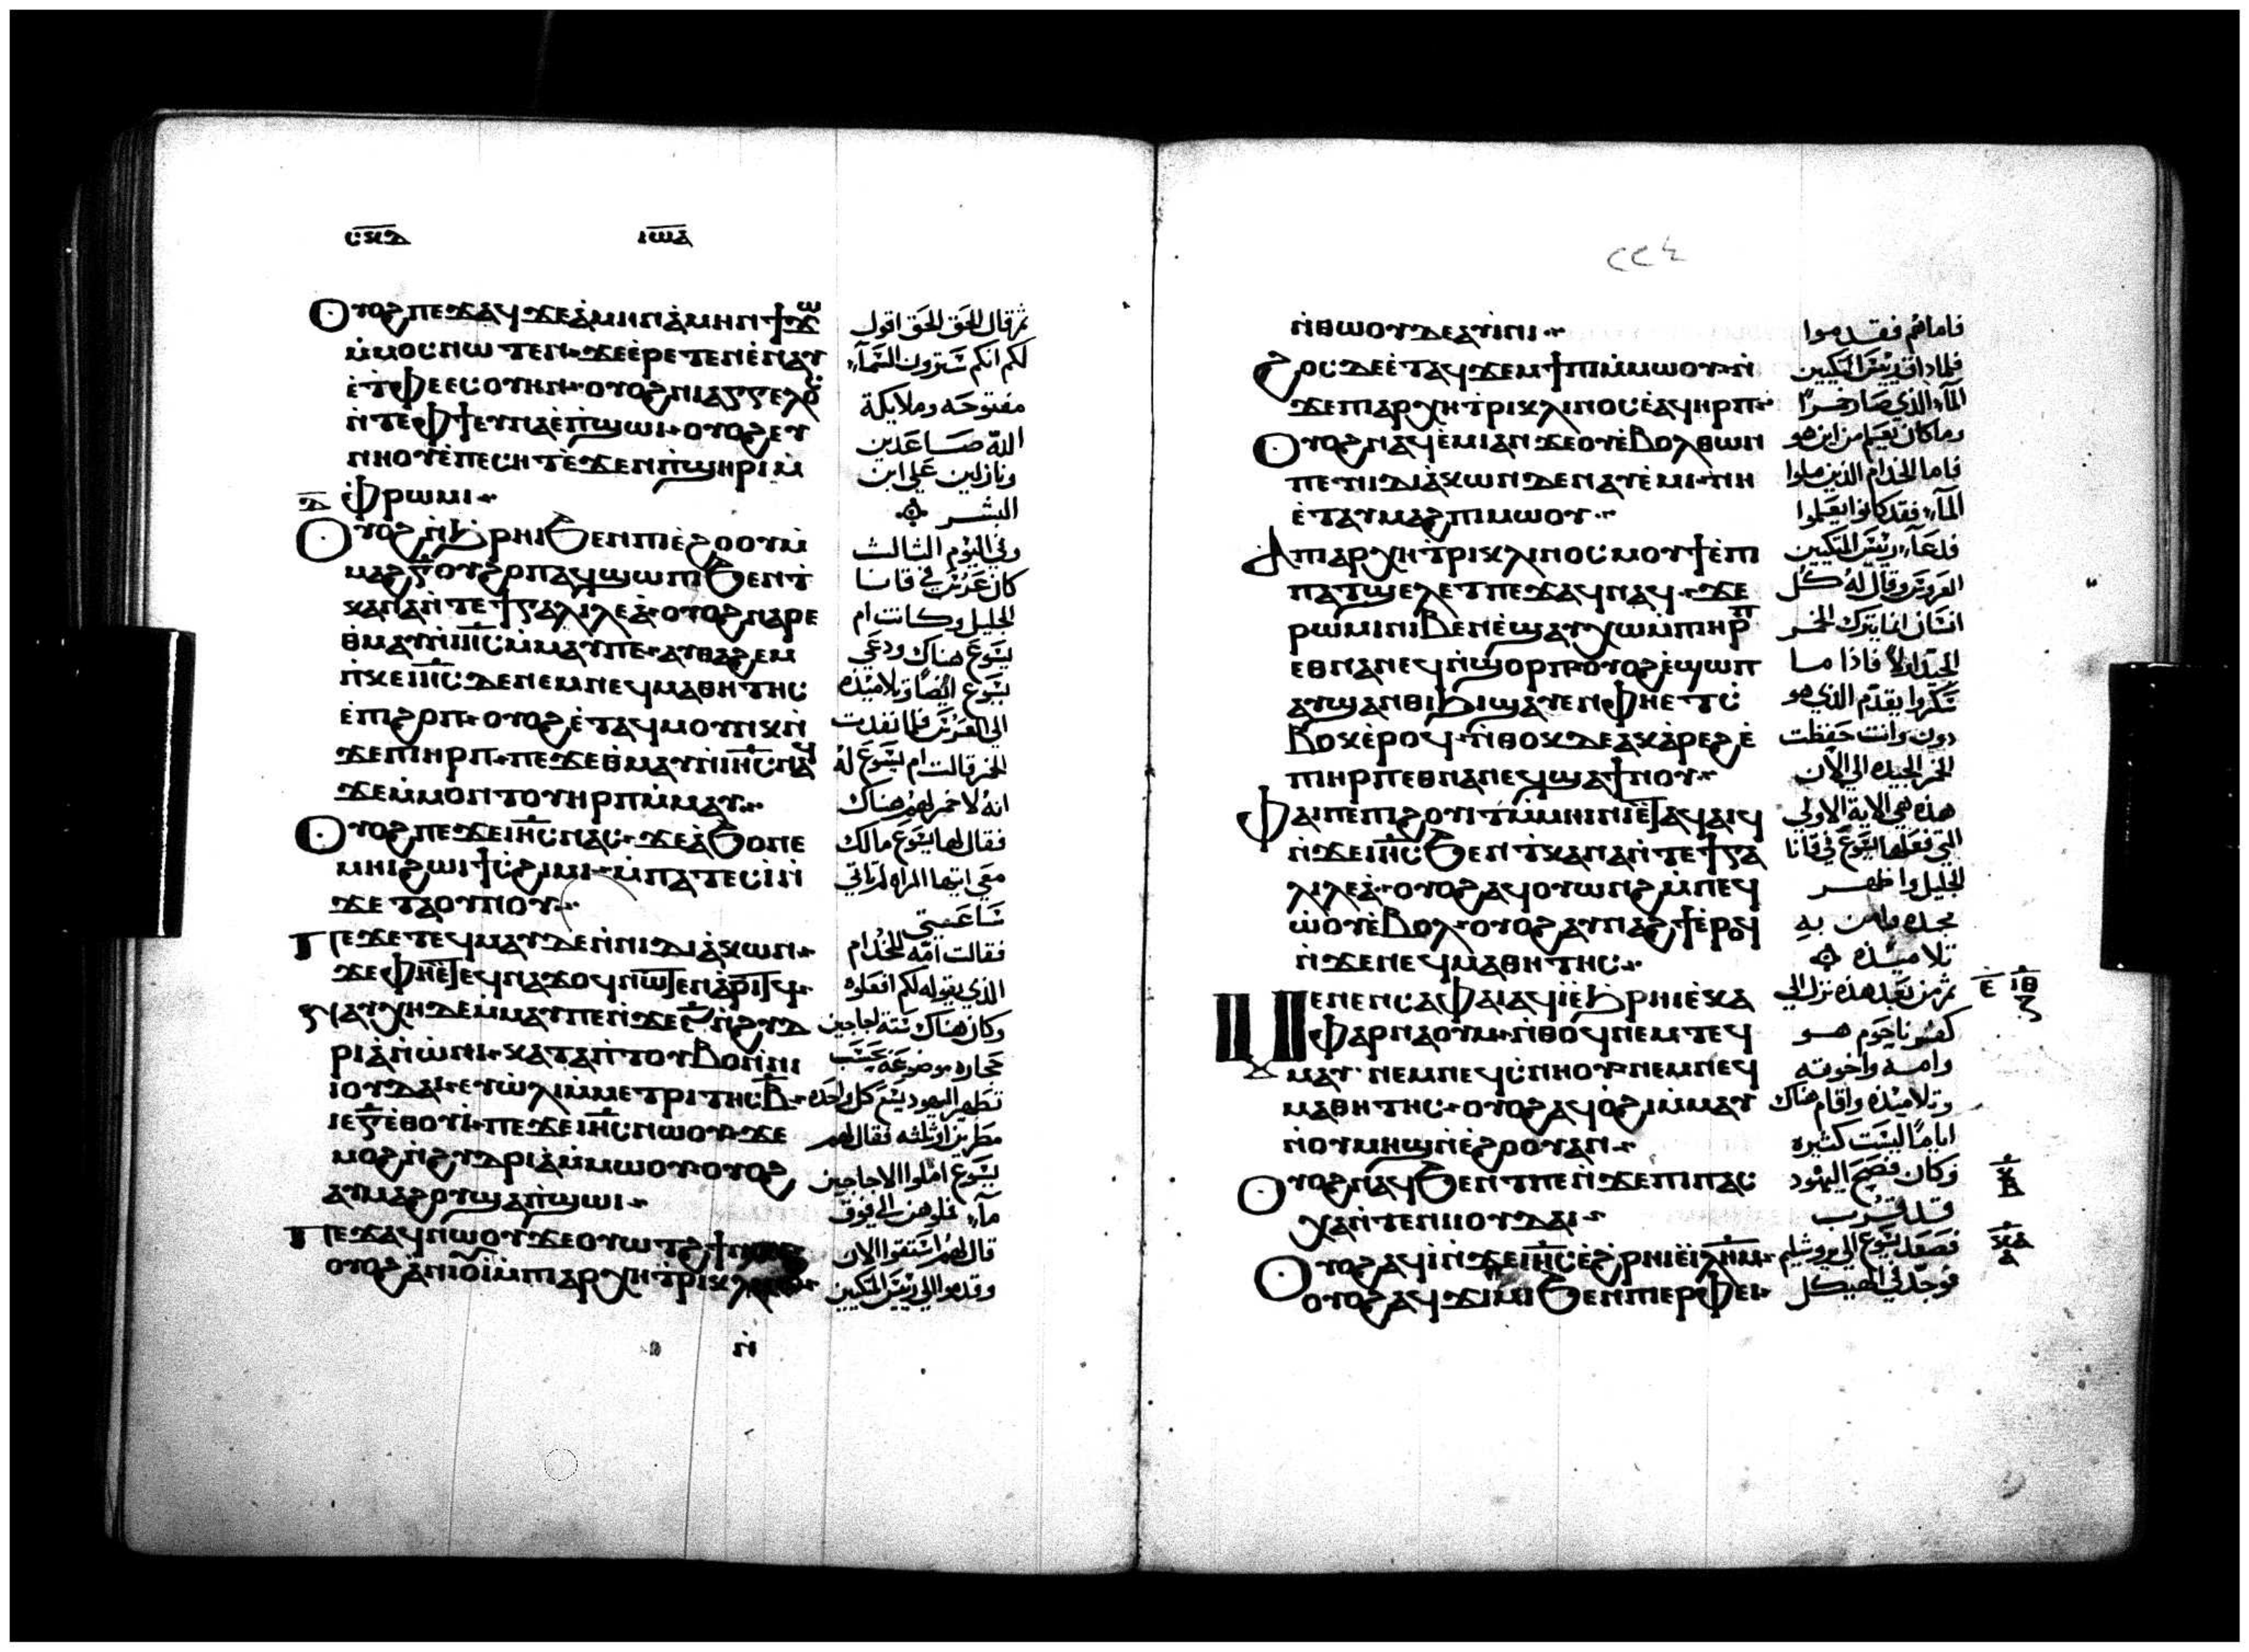 ⲥⲕⲇ ⲓⲱⲁ
Ⲟⲩⲟϩ ⲡⲉϫⲁϥ ϫⲉ ⲁ̀ⲙⲏⲛ ⲁ̀ⲙⲏⲛ ϯϫⲱ
ⲙ̀ⲙⲟⲥ ⲛⲱⲧⲉⲛ ϫⲉ ⲉ̀ⲣⲉⲧⲉⲛⲉ̀ⲛⲁⲩ
ⲉ̀ⲧ̀ⲫⲉ ⲉⲥⲟⲩⲏⲛ ⲟⲩⲟϩ ⲛⲓⲁⲅⲅⲉⲗⲟⲥ
ⲛ̀ⲧⲉⲫϯ ⲉⲩⲛⲁ ⲉ̀ⲡ̀ϣⲱⲓ ⲟⲩⲟϩ ⲉⲩ
ⲛⲏⲟⲩ ⲉ̀ⲡⲉⲥⲏⲧ ⲉ̀ϫⲉⲛ ⲡ̀ϣⲏⲣⲓ ⲙ̀
ⲇ ⲫ̀ⲣⲱⲙⲓ
Ⲟⲩⲟϩ ⲛ̀ϩ̀ⲣⲏⲓ ϧⲉⲛ ⲡⲓⲉ̀ϩⲟⲟⲩ ⲙ̀
ⲙⲁϩⲅ̅ ⲟⲩϩⲟⲡ ⲁϥϣⲱⲡⲓ ϧⲉⲛ ⲧ̀
ⲕⲁⲛⲁ ⲛ̀ⲧⲉ ϯⲅⲁⲗⲓⲗⲉⲁ̀ ⲟⲩⲟϩ ⲛⲁⲣⲉ
ⲑ̀ⲙⲁⲩ ⲛ̀ⲓⲏ̅ⲥ̅ ⲙ̀ⲙⲁⲩ ⲡⲉ ⲁⲩⲑⲁϩⲉⲙ
ⲛ̀ⲕⲉⲓⲏ̅ⲥ̅ ⲇⲉ ⲛⲉⲙ ⲛⲉϥⲙⲁⲑⲏⲧⲏⲥ
ⲉ̀ⲡⲓϩⲟⲡ ⲟⲩⲟϩ ⲉ̀ⲧⲁϥⲙⲟⲩⲛⲕ ⲛ̀
ϫⲉ ⲡⲓⲏⲣⲡ ⲡⲉϫⲉ ⲑ̀ⲙⲁⲩ ⲛ̀ⲓⲏ̅ⲥ̅ ⲛⲁϥ
ϫⲉ ⲙ̀ⲙⲟⲛⲧⲟⲩ ⲏⲣⲡ ⲙ̀ⲙⲁⲩ
Ⲟⲩⲟϩ ⲡⲉϫⲉ ⲓⲏ̅ⲥ̅ ⲛⲁⲥ ϫⲉ ⲁ̀ϧⲟ ⲛⲉ
ⲙⲏⲓ ϩⲱⲓ ϯⲥ̀ϩⲓⲙⲓ ⲙ̀ⲡⲁⲧⲉⲥⲓ̀ ⲛ̀
ϫⲉ ⲧⲁⲟⲩⲛⲟⲩ
Ⲡⲉϫⲉ ⲧⲉϥⲙⲁⲩ ⲇⲉ ⲛ̀ⲛⲓⲇⲓⲁ̀ⲕⲱⲛ
ϫⲉ ⲫⲏⲉ̀ⲧⲉϥⲛⲁϫⲟϥ ⲛⲱⲧⲉⲛ ⲁ̀ⲣⲓⲧϥ
ⲅ ⲛⲁⲩⲭⲏ ⲇⲉ ⲙ̀ⲙⲁⲩ ⲡⲉ ⲛ̀ϫⲉ ⲋ̅ ⲛ̀ϩⲩⲇ
ⲣⲓⲁ̀ ⲛ̀ⲱ̀ⲛⲓ ⲕⲁⲧⲁ ⲡ̀ⲧⲟⲩⲃⲟ ⲛ̀ⲛⲓ
ⲓⲟⲩⲇⲁⲓ ⲉⲩⲱ̀ⲗⲓ ⲙ̀ⲙⲉⲧⲣⲓⲧⲏⲥ ⲃ̅
ⲓⲉ ⲅ̅ ⲉ̀ⲑⲟⲩⲓ̀ ⲡⲉϫⲉ ⲓⲏ̅ⲥ̅ ⲛⲱⲟⲩ ϫⲉ
ⲙⲟϩ ⲛ̀ϩⲩⲇⲣⲓⲁ̀ ⲙ̀ⲙⲱⲟⲩ ⲟⲩⲟϩ
ⲁⲩⲙⲁϩⲟⲩ ϣⲁ ⲡ̀ϣⲱⲓ
Ⲡⲉϫⲁϥ ⲛⲱⲟⲩ ϫⲉ ⲟⲩⲱⲧϩ ϯⲛⲟⲩ
ⲟⲩⲟϩ ⲁ̀ⲛⲓⲟⲩⲓ̀ ⲙ̀ⲡⲓⲁⲣⲭⲏⲧ̀ⲣⲓⲕⲗⲓⲛⲟⲥ
ⲛ̀
ثم قال الحق الحق اقول
لكم انكم سترون السمآء
مفتوحه وملايكة
الله صاعدين
ونازلين على ابن
البشر
وفي اليوم الثالث
كان عرس في قانا
الجليل وكانت ام
يسوع هناك ودعي
يسوع ايضا وتلاميذه
الى العرس فلما نفدت
الخمر قالت ام يسوع له
انه لا خمر لهم هناك
فقال لها يسوع مالك
معي ايتها المراه لم تاتي
ساعتي
فقالت امه للخدام
الذي يقوله لكم افعلوه
وكان هناك ستة اجاجين
حجاره موضوعة بحسب
تطهير اليهود يسع كل واحده
مطرين او ثلثه فقال لهم
يسوع املوا الاجاجين
مآء فملوهن الى فوق
قال لهم استقوا الان
وقدموا الى رييس المتكيين
٢٢٤
ⲛ̀ⲑⲱⲟⲩ ⲇⲉ ⲁⲩⲓ̀ⲛⲓ
ϩⲟⲥ ⲇⲉ ⲉ̀ⲧⲁϥϫⲉⲙϯⲡⲓ ⲙ̀ⲙⲱⲟⲩ ⲛ̀
ϫⲉ ⲡⲓⲁⲣⲭⲏⲧ̀ⲣⲓⲕⲗⲓⲛⲟⲥ ⲉ̀ⲁϥⲏⲣⲡ
Ⲟⲩⲟϩ ⲛⲁϥⲉ̀ⲙⲓ ⲁⲛ ϫⲉ ⲟⲩⲉ̀ⲃⲟⲗ ⲑⲱⲛ
ⲡⲉ ⲛⲓⲇⲓⲁ̀ⲕⲱⲛ ⲇⲉ ⲛⲁⲩⲉ̀ⲙⲓ ⲛⲏ
ⲉ̀ⲧⲁⲩⲙⲁϩ ⲡⲓⲙⲱⲟⲩ
Ⲁ ⲡⲓⲁⲣⲭⲏⲧ̀ⲣⲓⲕⲗⲓⲛⲟⲥ ⲙⲟⲩϯ ⲉ̀ⲡⲓ
ⲡⲁⲧϣⲉⲗⲉⲧ ⲡⲉϫⲁϥ ⲛⲁϥ ϫⲉ
ⲣⲱⲙⲓ ⲛⲓⲃⲉⲛ ⲉ̀ϣⲁⲩⲭⲱ ⲙ̀ⲡⲓⲏⲣⲡ
ⲉⲑⲛⲁⲛⲉϥ ⲛ̀ϣⲟⲣⲡ ⲟⲩⲟϩ ⲉ̀ϣⲱⲡ
ⲁⲩϣⲁⲛⲑⲓϧⲓ ϣⲁⲩⲉⲛ ⲫⲏⲉⲧϭ
ⲃⲟⲕ ⲉ̀ⲣⲟϥ ⲛ̀ⲑⲟⲕ ⲇⲉ ⲁⲕⲁ̀ⲣⲉϩ ⲉ̀
ⲡⲓⲏⲣⲡ ⲉⲑⲛⲁⲛⲉϥ ϣⲁ ϯⲛⲟⲩ
Ⲫⲁⲓ ⲡⲉ ⲡⲓϩⲟⲩⲓⲧ ⲙ̀ⲙⲏⲓⲛⲓ ⲉ̀ⲧⲁϥⲁⲓϥ
ⲛ̀ϫⲉ ⲓⲏ̅ⲥ̅ ϧⲉⲛ ⲧ̀ⲕⲁⲛⲁ ⲛ̀ⲧⲉ ϯⲅⲁ
ⲗⲓⲗⲉⲁ̀ ⲟⲩⲟϩ ⲁϥⲟⲩⲱⲛϩ ⲙ̀ⲡⲉϥ
ⲱ̀ⲟⲩ ⲉ̀ⲃⲟⲗ ⲟⲩⲟϩ ⲁⲩⲛⲁϩϯ ⲉ̀ⲣⲟϥ
ⲛ̀ϫⲉ ⲛⲉϥⲙⲁⲑⲏⲧⲏⲥ
Ⲙⲉⲛⲉⲛⲥⲁ ⲫⲁⲓ ⲁϥⲓ̀ ⲉ̀ϧ̀ⲣⲏⲓ ⲉ̀ⲕⲁ
ⲫⲁⲣⲛⲁⲟⲩⲙ ⲛ̀ⲑⲟϥ ⲛⲉⲙ ⲧⲉϥ
ⲙⲁⲩ ⲛⲉⲙ ⲛⲉϥⲥ̀ⲛⲏⲟⲩ ⲛⲉⲙ ⲛⲉϥ
ⲙⲁⲑⲏⲧⲏⲥ ⲟⲩⲟϩ ⲁϥⲟ̀ϩⲓ ⲙ̀ⲙⲁⲩ
ⲛ̀ⲟⲩⲙⲏϣ ⲛ̀ⲉ̀ϩⲟⲟⲩ ⲁⲛ
Ⲟⲩⲟϩ ⲛⲁϥϧⲉⲛⲧ ⲡⲉ ⲛ̀ϫⲉ ⲡⲓⲡⲁⲥ
ⲭⲁ ⲛ̀ⲧⲉ ⲛⲓⲓⲟⲩⲇⲁⲓ
Ⲟⲩⲟϩ ⲁϥⲓ̀ ⲛ̀ϫⲉ ⲓⲏ̅ⲥ̅ ⲉ̀ϩ̀ⲣⲏⲓ ⲉ̀ⲓⲗ̅ⲏ̅ⲙ̅
ⲟⲩⲟϩ ⲁϥϫⲓⲙⲓ ϧⲉⲛ ⲡⲓⲉⲣⲫⲉⲓ
فاما هم فقدموا
فلما ذاق رييس المتكيين
المآء الذي صار خمرا
وما كان يعلم من اين هو
فاما الخدام الذين ملوا
المآء فقد كانوا يعلموا
فدعآء رييس المتكيين
العروس وقال له كل
انسان انما يترك الخمر
الجيد اولا فاذا ما
سكروا يقدم الذي هو
دون وانت حفظت
الخمر الجيده الى الآن
هذه هي الاية الاولى
التي فعلها يسوع في قانا
الجليل واظهر
مجده وامن به
تلاميذه
ثم من بعد هذه نزل الى
كفرناحوم هو
وامه واخوته
وتلاميذه واقام هناك
اياما ليست كثيره
وكان فصح اليهود
قد قرب
فصعد يسوع الى يروشليم
فوجد في الهيكل
ⲉ ⲓⲑ
ⲍ
ⲕ
ⲕⲁ
ⲁ